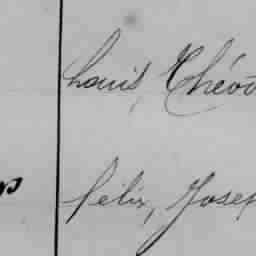 Louis, Théo
Félix, Josep